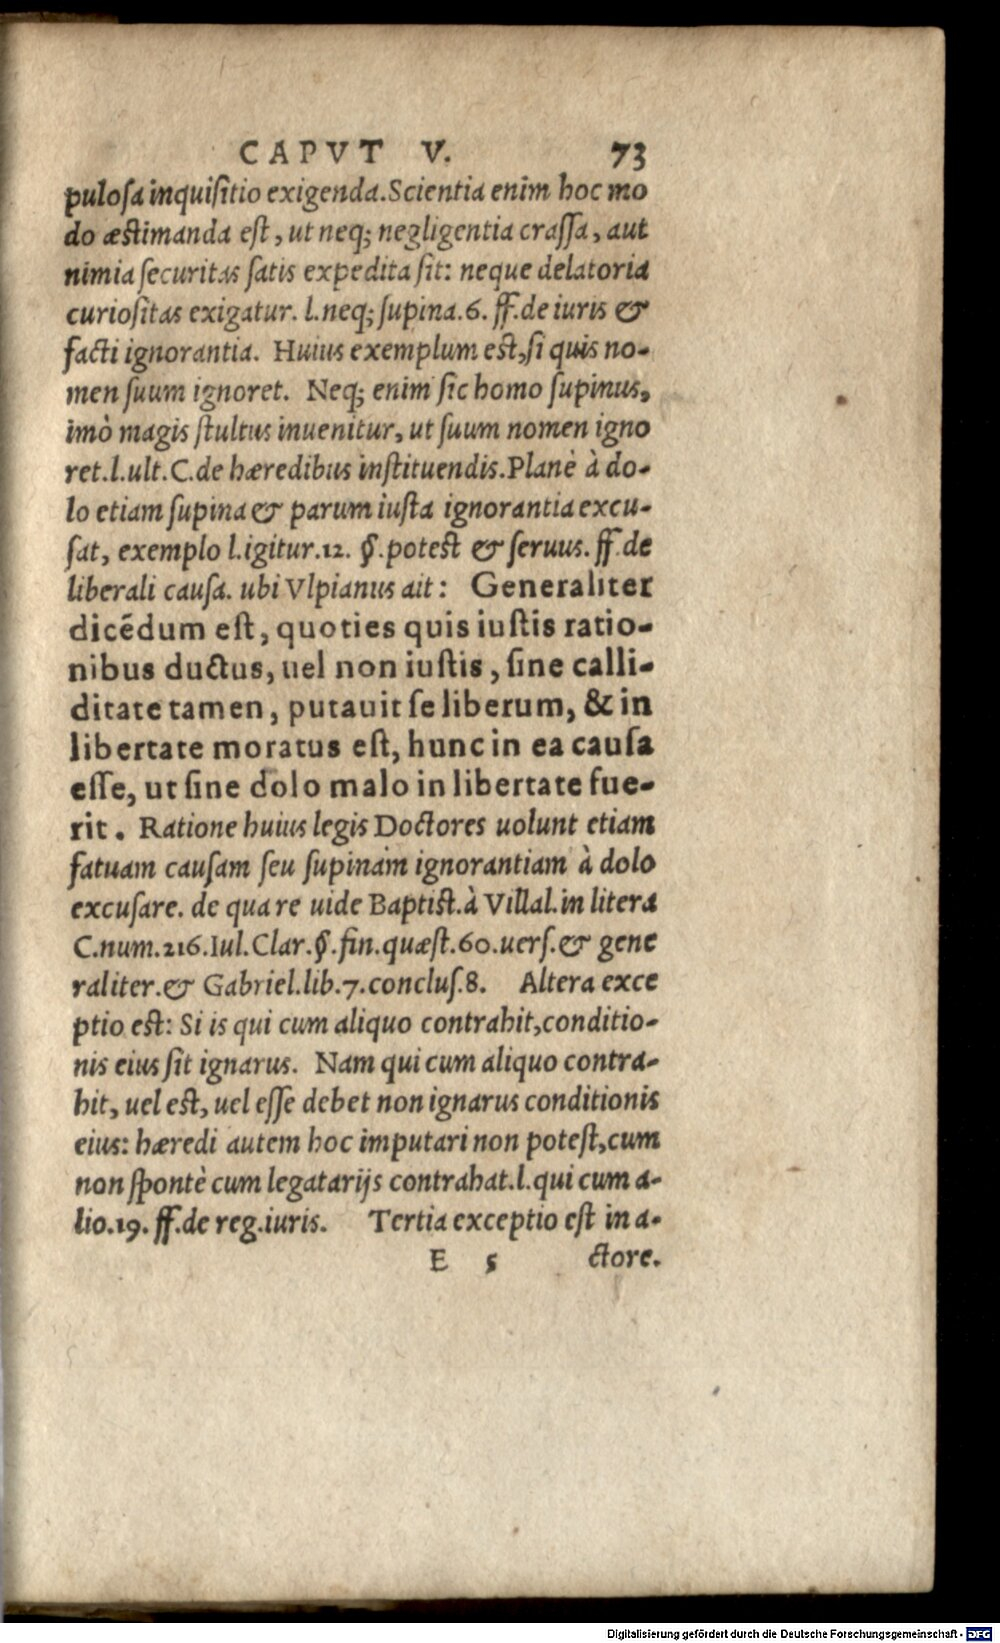 CAPVT V. 73
puloſa inquiſitio exigenda. Scientia enim hoc mo
do æſtimanda eſt, ut neq; negligentia craſſa, aut
nimia ſecuritas ſatis expedita ſit: neque delatoria
curioſitas exigatur. l. neq; ſupina. 6. ff. de iuris &
facti ignorantia. Huius exemplum eſt, ſi quis no-
men ſuum ignoret. Neq; enim ſic homo ſupinus,
imò magis ſtultus inuenitur, ut ſuum nomen igno
ret. l. ult. C. de hæredibus inſtituendis. Planè à do-
lo etiam ſupina & parum iuſta ignorantia excu-
ſat, exemplo l. igitur. 12. §. poteſt & ſeruus. ff. de
liberali cauſa. ubi Vlpianus ait: Generaliter
dicēdum eſt, quoties quis iuſtis ratio-
nibus ductus, uel non iuſtis, ſine calli-
ditate tamen, putauit ſe liberum, & in
libertate moratus eſt, hunc in ea cauſa
eſſe, ut ſine dolo malo in libertate fue-
rit. Ratione huius legis Doctores uolunt etiam
fatuam cauſam ſeu ſupinam ignorantiam à dolo
excuſare. de qua re uide Baptiſt. à Villal. in litera
C. num. 216. Iul. Clar. §. fin. quæſt. 60. uerſ. & gene
raliter. & Gabriel. lib. 7. concluſ. 8. Altera exce
ptio eſt: Si is qui cum aliquo contrahit, conditio-
nis eius ſit ignarus. Nam qui cum aliquo contra-
hit, uel eſt, uel eſſe debet non ignarus conditionis
eius: hæredi autem hoc imputari non poteſt, cum
non ſpontè cum legatarijs contrahat. l. qui cum a-
lio. 19. ff. de reg. iuris. Tertia exceptio eſt in a-
E 5 ctore.
Digitalisierung gefördert durch die Deutsche Forschungsgemeinschaft - DFG